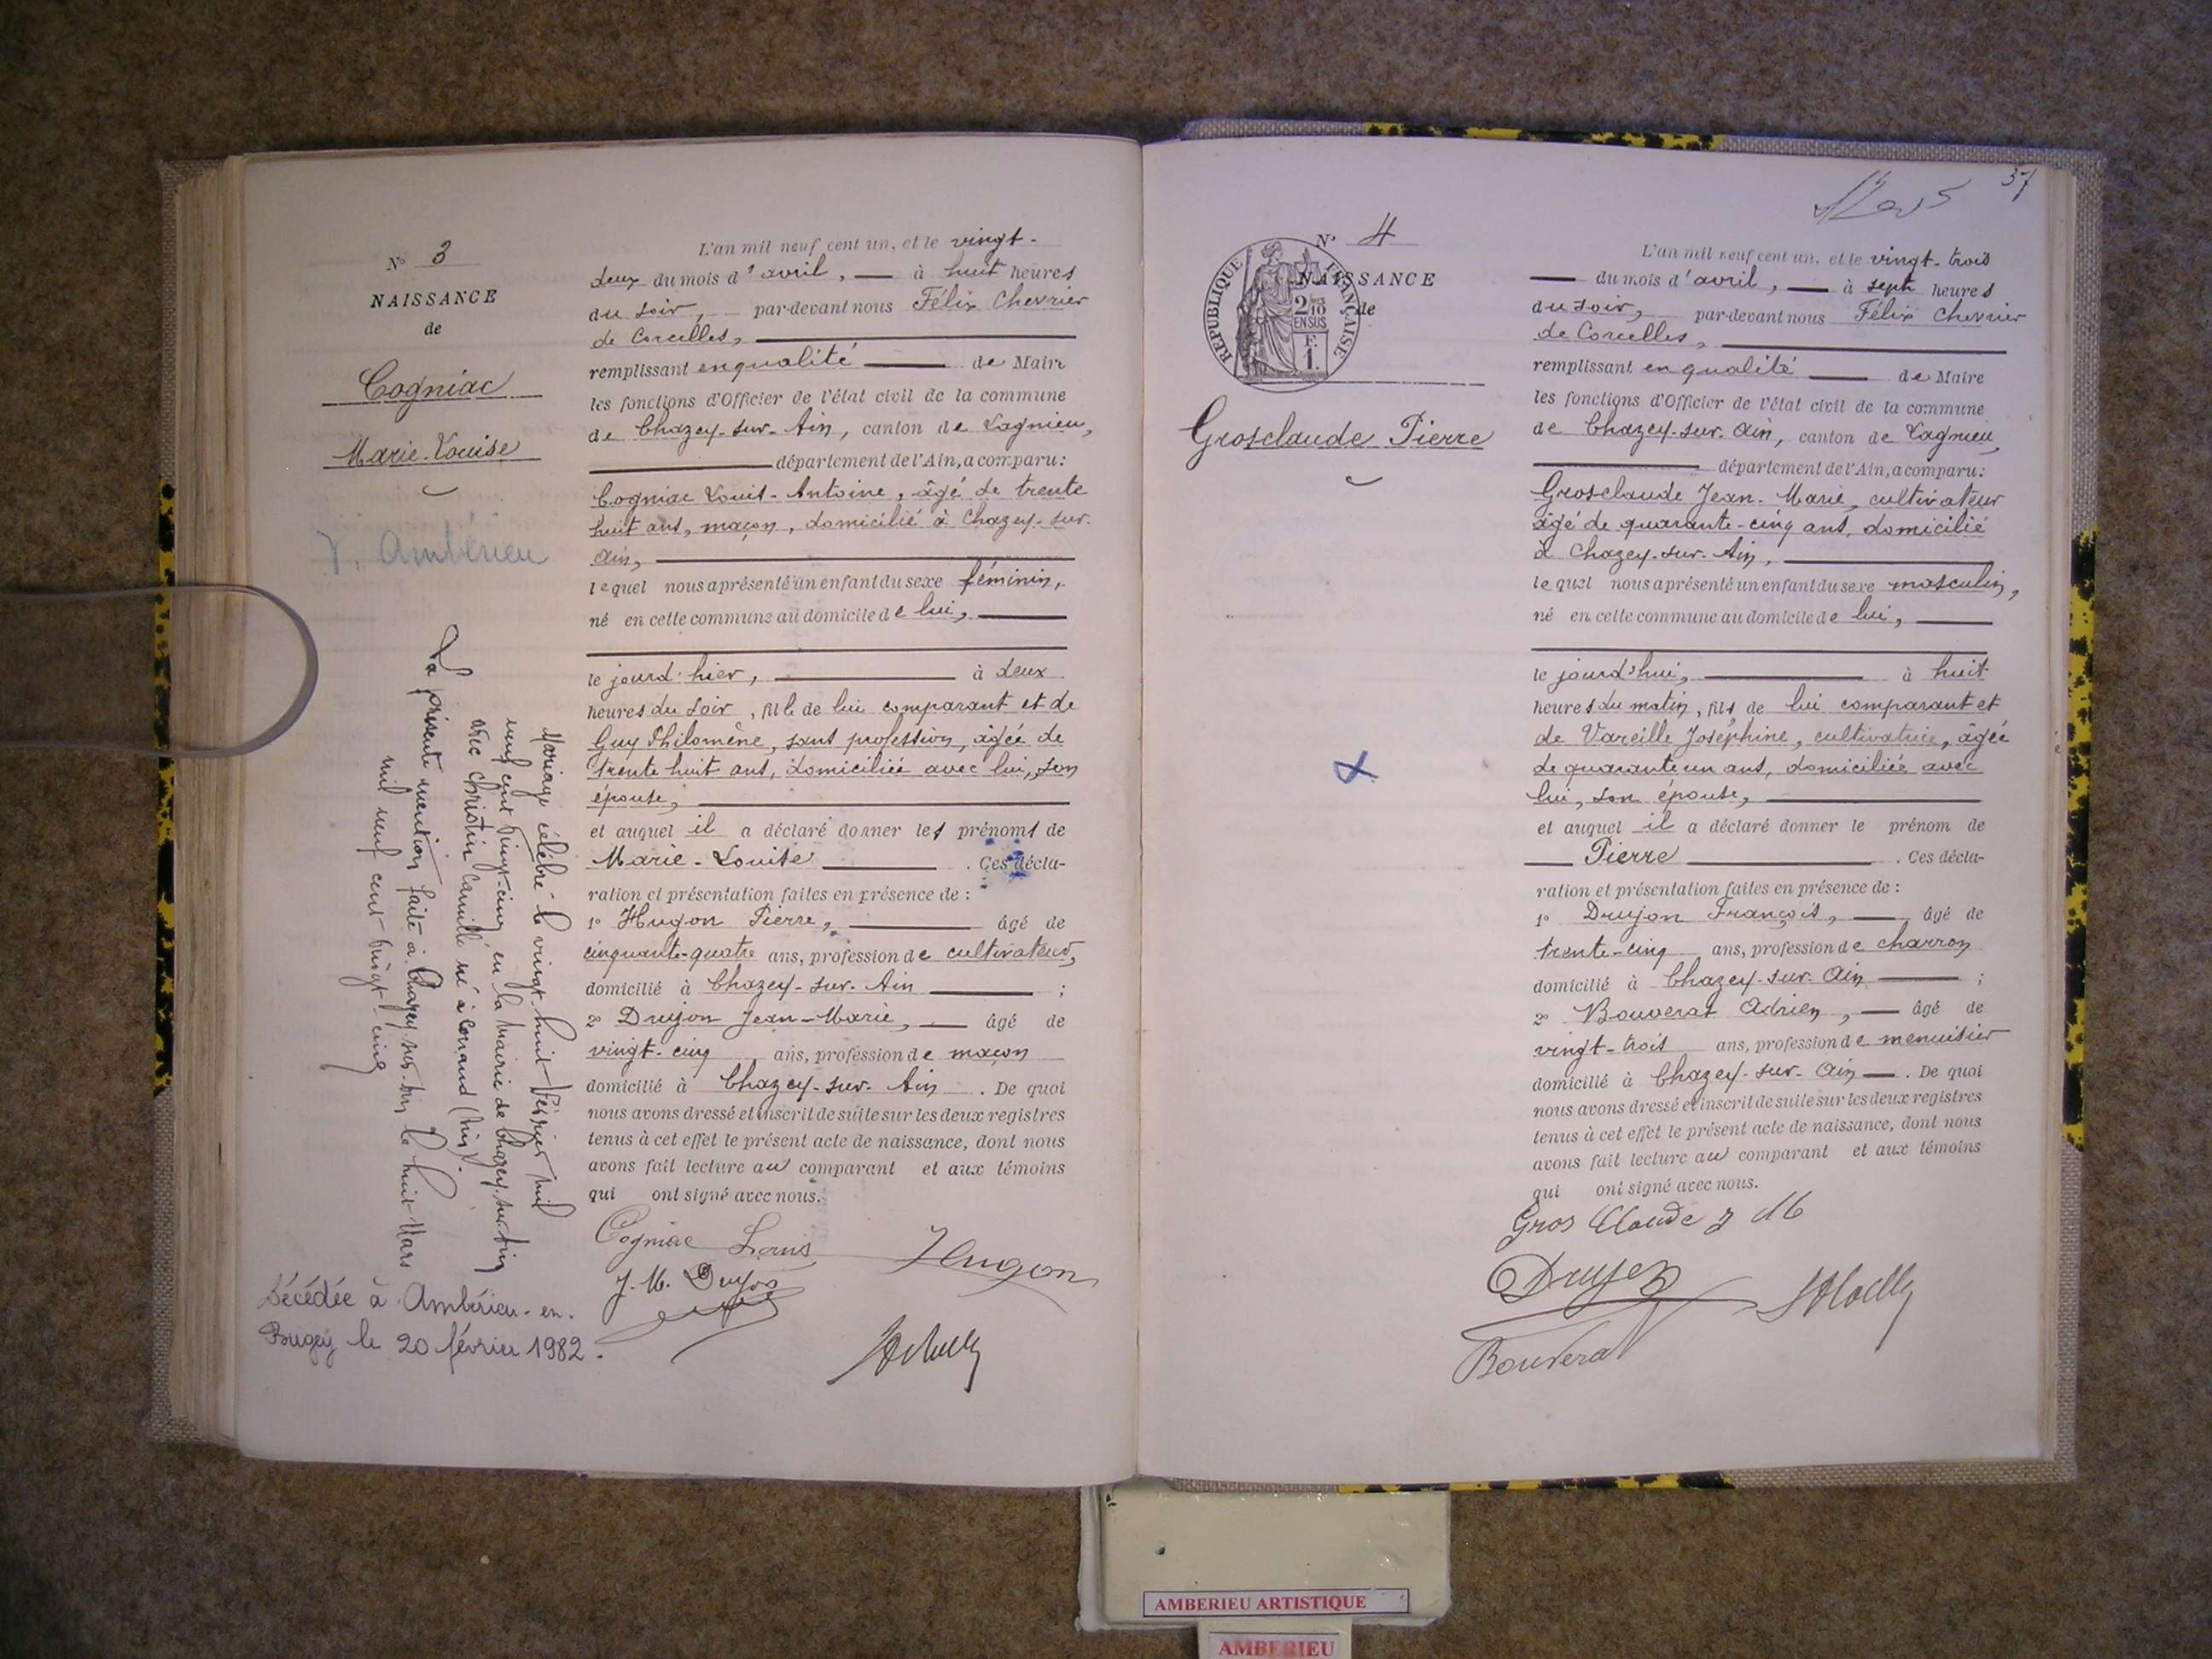 N° 3
NAISSANCE
de
Cogniac
Marie-Louise
Ambérieu
L'an mil neuf cent un, et le vingt-
deux du mois d'avril, à huit heures
du soir, par-devant nous Félix Chevrier
de Corcelles,
remplissant en qualité de Maire
les fonctions d'Officier de l'état civil de la commune
de Chazey-sur-Ain, canton de Lagnieu,
département de l'Ain, a comparu:
Cogniac Louis-Antoine, âgé de trente
huit ans, maçon, domicilié à Chazey-sur-
Ain,
lequel nous a présenté un enfant du sexe féminin,
né en cette commune au domicile de lui,
le jourd'hier, à deux
heures du soir, fille de lui comparant et de
Guy Philomène, sans profession, âgée de
trente huit ans, domiciliée avec lui, son
épouse,
et auquel il a déclaré donner les prénoms de
Marie-Louise . Ces décla-
ration et présentation faites en présence de :
1° Hugon Pierre, âgé de
cinquante-quatre ans, profession de cultivateur,
domicilié à Chazey-sur-Ain ;
2° Drujon Jean-Marie, âgé de
vingt-cinq ans, profession de maçon
domicilié à Chazey-sur-Ain . De quoi
nous avons dressé et inscrit de suite sur les deux registres
tenus à cet effet le présent acte de naissance, dont nous
avons fait lecture au comparant et aux témoins
qui ont signé avec nous.
Cogniac Louis Hugon
J. M. Drujon
Mariage célébré le vingt-huit Février mil
neuf cent vingt-cinq en la mairie de Chazey-sur-Ain
avec Christin Camille né à (Ain).
La présente mention faite à Chazey-sur-Ain le huit Mars
mil neuf cent vingt-cinq
Décédée à Ambérieu-en-
Bugey le 20 février 1982.
37
N° 4
NAISSANCE
de
RÉPUBLIQUE FRANÇAISE
2/10
EN SUS
F.
1.
Grosclaude Pierre
L'an mil neuf cent un, et le vingt-trois
du mois d'avril, à sept heures
du soir, par-devant nous Félix Chevrier
de Corcelles,
remplissant en qualité de Maire
les fonctions d'Officier de l'état civil de la commune
de Chazey-sur-Ain, canton de Lagnieu,
département de l'Ain, a comparu:
Grosclaude Jean-Marie, cultivateur
âgé de quarante-cinq ans, domicilié
à Chazey-sur-Ain,
lequel nous a présenté un enfant du sexe masculin,
né en cette commune au domicile de lui,
le jourd'hui, à huit
heures du matin, fils de lui comparant et
de Vareille Joséphine, cultivatrice, âgée
de quarante un ans, domiciliée avec
lui, son épouse,
et auquel il a déclaré donner le prénom de
Pierre . Ces décla-
ration et présentation faites en présence de :
1° Drujon François, âgé de
trente-cinq ans, profession de charron
domicilié à Chazey-sur-Ain ;
2° Bouverat Adrien, âgé de
vingt-trois ans, profession de menuisier
domicilié à Chazey-sur-Ain . De quoi
nous avons dressé et inscrit de suite sur les deux registres
tenus à cet effet le présent acte de naissance, dont nous
avons fait lecture au comparant et aux témoins
qui ont signé avec nous.
Gros Claude J M
Drujon
Bouverat
AMBERIEU ARTISTIQUE
AMBERIEU